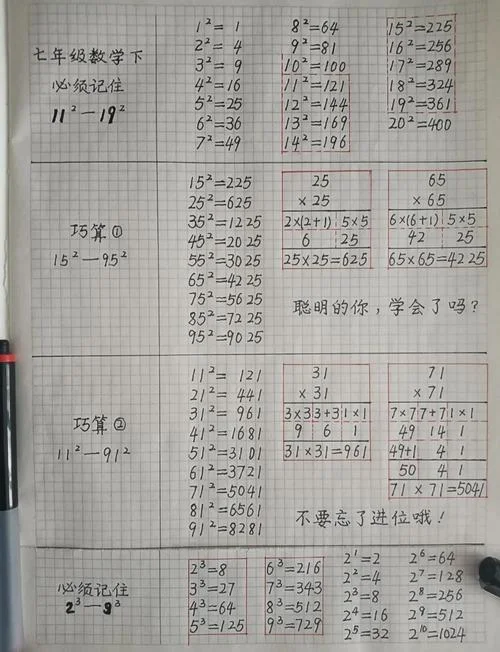 七年级数学下
必须记住
11²—19²
1²= 1
2²= 4
3²= 9
4²=16
5²=25
6²=36
7²=49
8²=64
9²=81
10²=100
11²=121
12²=144
13²=169
14²=196
15²=225
16²=256
17²=289
18²=324
19²=361
20²=400
巧算①
15²—95²
15²=225
25²=625
35²=1225
45²=2025
55²=3025
65²=4225
75²=5625
85²=7225
95²=9025
25
×25
2×(2+1) 5×5
6 25
25×25=625
65
×65
6×(6+1) 5×5
42 25
65×65=4225
聪明的你，学会了吗？
巧算②
11²—91²
11²= 121
21²= 441
31²= 961
41²=1681
51²=3101
61²=3721
71²=5041
81²=6561
91²=8281
31
×31
3×3 3+3 1×1
9 6 1
31×31=961
71
×71
7×7 7+7 1×1
49 14 1
49+1 4 1
50 4 1
71×71=5041
不要忘了进位哦！
必须记住
2³—9³
2³=8
3³=27
4³=64
5³=125
6³=216
7³=343
8³=512
9³=729
2¹=2
2²=4
2³=8
2⁴=16
2⁵=32
2⁶=64
2⁷=128
2⁸=256
2⁹=512
2¹⁰=1024